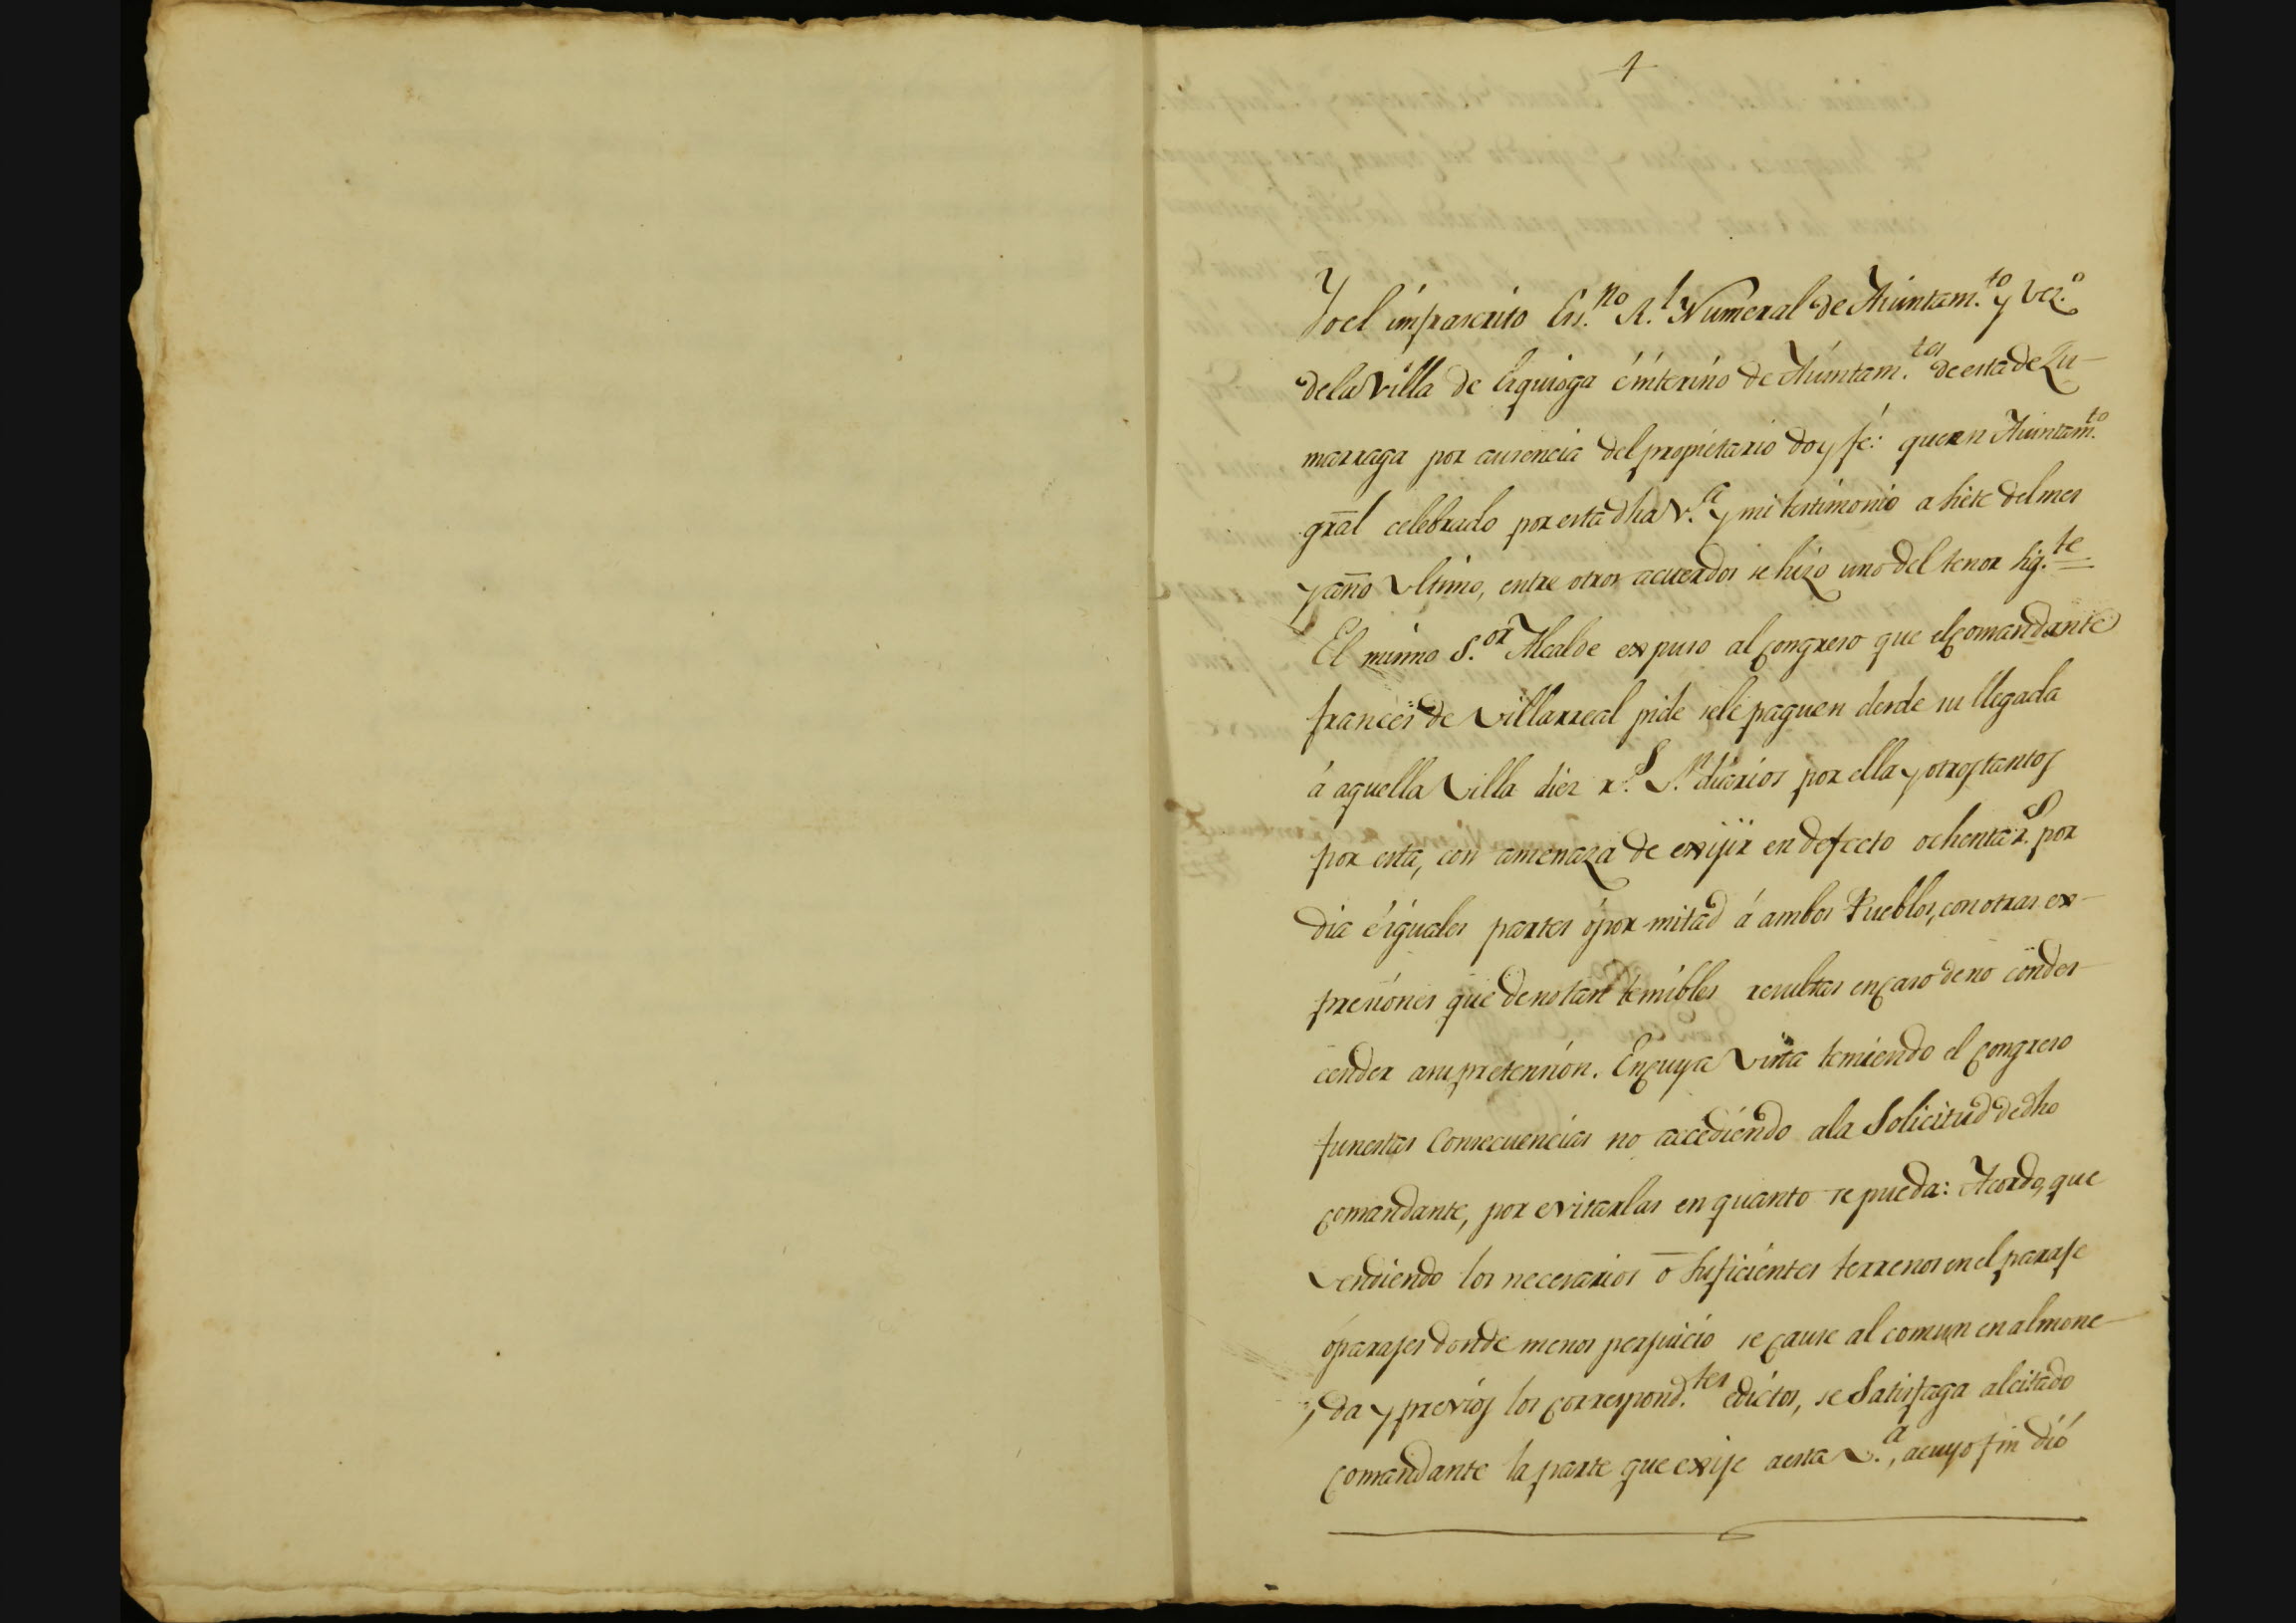 Yo el infrascrito Es.no R.l Numeral de Aiuntam.to y vez.o
de la Villa de Ezquioga é interino de Aiuntam.tos de esta de Zu-
marraga por ausencia del propietario doy fé: que en Aiuntam.to
gral celebrado por esta dha V.a y mi testimonio a siete del mes
y año ultimo, entre otros acuerdos se hizo uno del tenor sig.te
El mismo S.or Alcalde expuso al Congreso que el Comandante
frances de Villarreal pide se le paguen desde su llegada
á aquella Villa diez r.s v.n diarios por ella y otros tantos
por esta, con amenaza de exijir en defecto ochenta r.s por
dia é iguales partes ó por mitad á ambos Pueblos, con otras ex-
presiones que denotan temibles resultas en caso de no condes-
cender a su pretension. En cuya vista temiendo el Congreso
funestas Consecuencias no accediendo a la Solicitud de dho
Comandante, por evitarlas en quanto se pueda: Acordo, que
vendiendo los necesarios o suficientes terrenos en el paraje
ó parajes donde menos perjuicio se cause al comun en almone-
da y previos los correspond.tes edictos, se Satisfaga al citado
Comandante la parte que exije a esta V.a, a cuyo fin dió